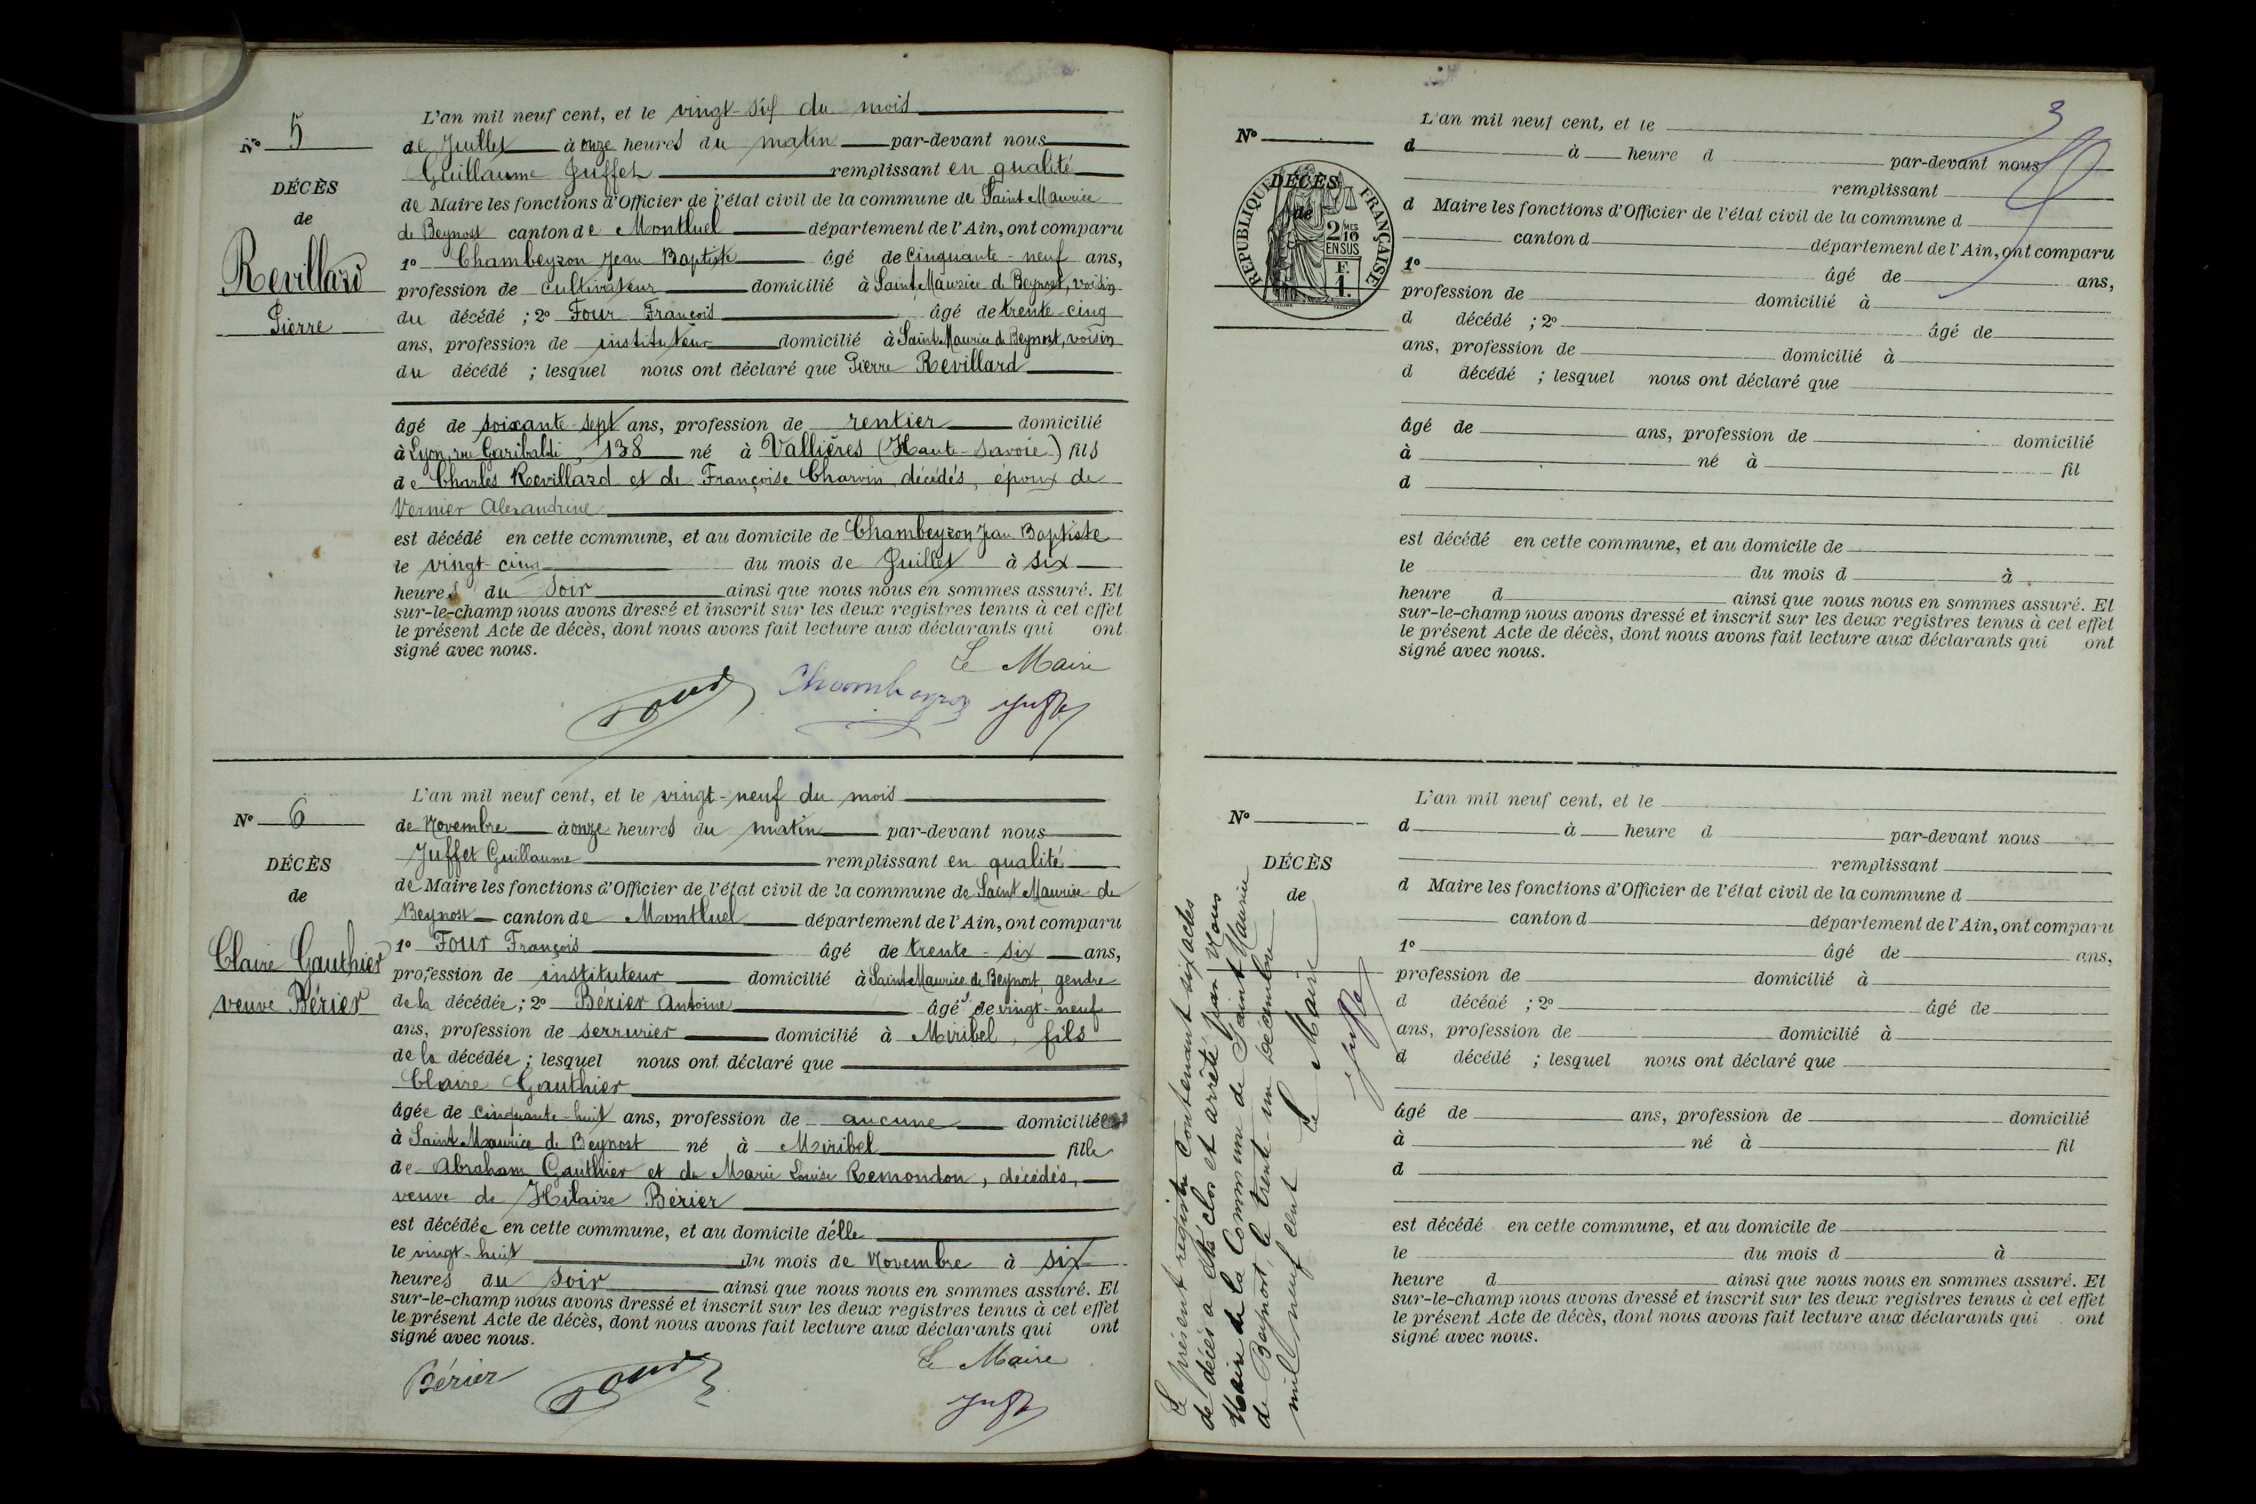 N° 5
DÉCÈS
de
Revillard
Pierre
L'an mil neuf cent, et le vingt-six du mois
de Juillet à onze heures du matin par-devant nous
Guillaume Juffet remplissant en qualité
de Maire les fonctions d'Officier de l'état civil de la commune de Saint Maurice
de Beynost canton de Montluel département de l'Ain, ont comparu
1° Chambeyron Jean Baptiste âgé de cinquante-neuf ans,
profession de cultivateur domicilié à Saint Maurice de Beynost, voisin
du décédé ; 2° Four François âgé de trente-cinq
ans, profession de instituteur domicilié à Saint Maurice de Beynost, voisin
du décédé ; lesquel nous ont déclaré que Pierre Revillard
âgé de soixante-sept ans, profession de rentier domicilié
à Lyon, rue Garibaldi, 138 né à Vallières (Haute-Savoie) fils
de Charles Revillard et de Françoise Charvin, décédés, époux de
Vernier Alexandrine
est décédé en cette commune, et au domicile de Chambeyron Jean Baptiste
le vingt-cinq du mois de Juillet à six
heures du soir ainsi que nous nous en sommes assuré. Et
sur-le-champ nous avons dressé et inscrit sur les deux registres tenus à cet effet
le présent Acte de décès, dont nous avons fait lecture aux déclarants qui ont
signé avec nous.
Le Maire
Four Chambeyron Juffet
N° 6
DÉCÈS
de
Claire Gauthier
veuve Bérier
L'an mil neuf cent, et le vingt-neuf du mois
de Novembre à onze heures du matin par-devant nous
Juffet Guillaume remplissant en qualité
de Maire les fonctions d'Officier de l'état civil de la commune de Saint Maurice de
Beynost canton de Montluel département de l'Ain, ont comparu
1° Four François âgé de trente-six ans,
profession de instituteur domicilié à Saint Maurice de Beynost, gendre
de la décédée ; 2° Bérier Antoine âgé de vingt-neuf
ans, profession de serrurier domicilié à Miribel, fils
de la décédée ; lesquel nous ont déclaré que
Claire Gauthier
âgée de cinquante-huit ans, profession de aucune domiciliée
à Saint Maurice de Beynost né à Miribel fille
de Abraham Gauthier et de Marie Louise Remondon, décédés,
veuve de Hilaire Bérier
est décédée en cette commune, et au domicile d'elle
le vingt-huit du mois de Novembre à six
heures du soir ainsi que nous nous en sommes assuré. Et
sur-le-champ nous avons dressé et inscrit sur les deux registres tenus à cet effet
le présent Acte de décès, dont nous avons fait lecture aux déclarants qui ont
signé avec nous.
Le Maire
Bérier Four Juffet
3
N°
DÉCÈS
de
RÉPUBLIQUE FRANÇAISE
2/10 MES
EN SUS
F.
1.
L'an mil neuf cent, et le
d à heure d par-devant nous
remplissant
d Maire les fonctions d'Officier de l'état civil de la commune d
canton d département de l'Ain, ont comparu
1° âgé de ans,
profession de domicilié à
d décédé ; 2° âgé de
ans, profession de domicilié à
d décédé ; lesquel nous ont déclaré que
âgé de ans, profession de domicilié
à né à fil
d
est décédé en cette commune, et au domicile de
le du mois d à
heure d ainsi que nous nous en sommes assuré. Et
sur-le-champ nous avons dressé et inscrit sur les deux registres tenus à cet effet
le présent Acte de décès, dont nous avons fait lecture aux déclarants qui ont
signé avec nous.
N°
DÉCÈS
de
L'an mil neuf cent, et le
d à heure d par-devant nous
remplissant
d Maire les fonctions d'Officier de l'état civil de la commune d
canton d département de l'Ain, ont comparu
1° âgé de ans,
profession de domicilié à
d décédé ; 2° âgé de
ans, profession de domicilié à
d décédé ; lesquel nous ont déclaré que
âgé de ans, profession de domicilié
à né à fil
d
est décédé en cette commune, et au domicile de
le du mois d à
heure d ainsi que nous nous en sommes assuré. Et
sur-le-champ nous avons dressé et inscrit sur les deux registres tenus à cet effet
le présent Acte de décès, dont nous avons fait lecture aux déclarants qui ont
signé avec nous.
Le présent registre contenant six actes
de décès a été clos et arrêté par Nous
Maire de la Commune de Saint Maurice
de Beynost, le trente-un Décembre
mil neuf cent
Le Maire
Juffet